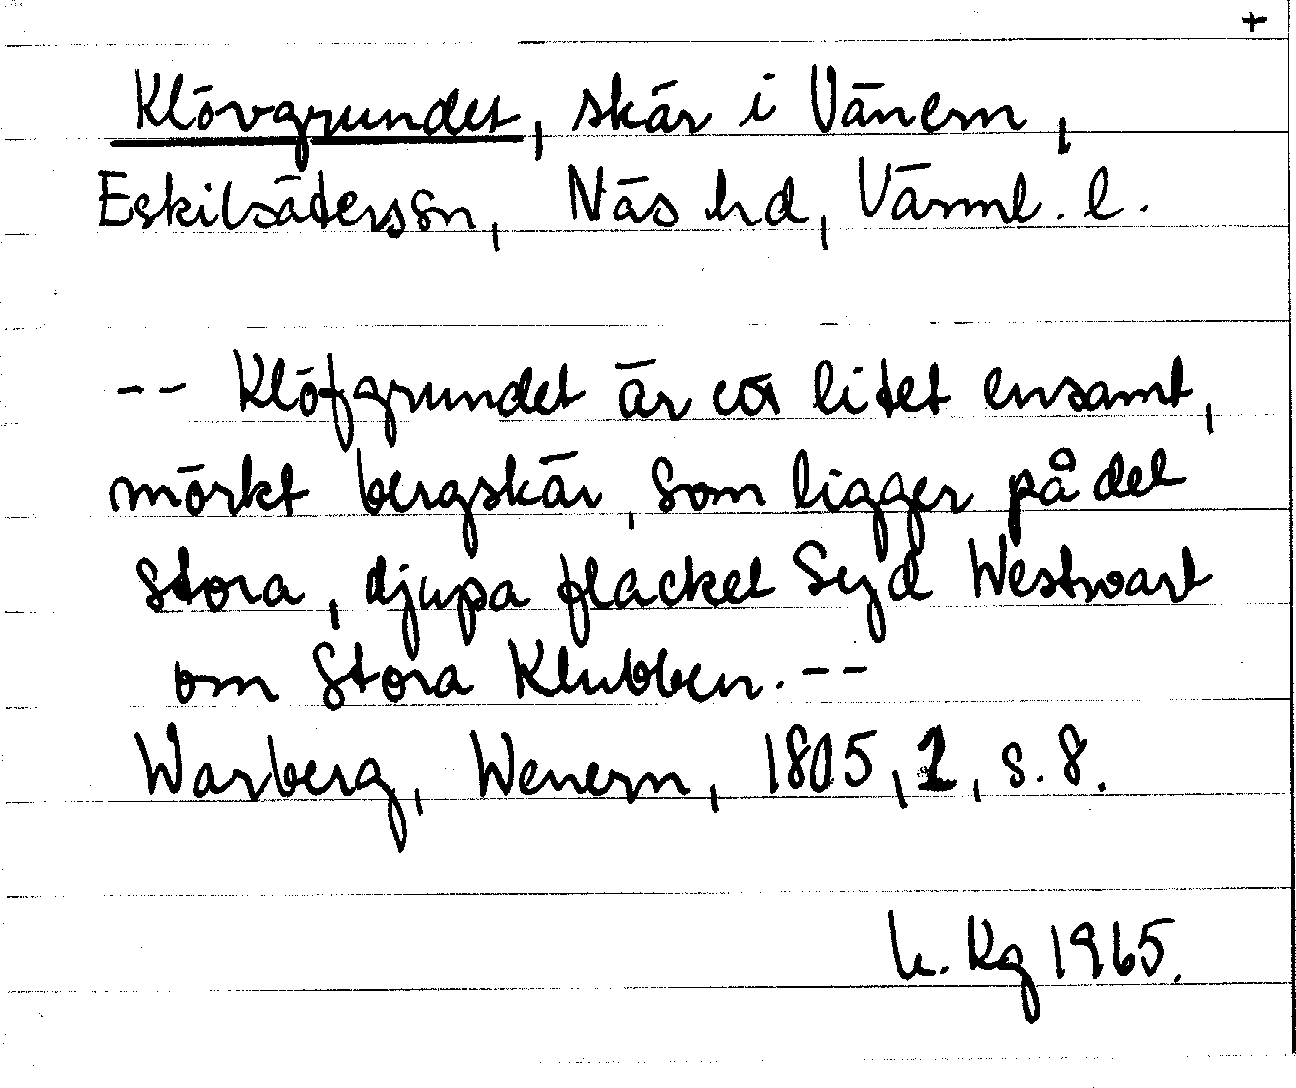 +
Klövgrundet, skär i Vänern,
Eskilsäterssn, Näs hd, Värml. l.
-- Klöfgrundet är ett litet ensamt,
mörkt bergskär, som ligger på det
stora, djupa flacket Syd Westwart
om Stora Klubben. --
Warberg, Wenern, 1805, 1, s. 8.
Kg 1965.